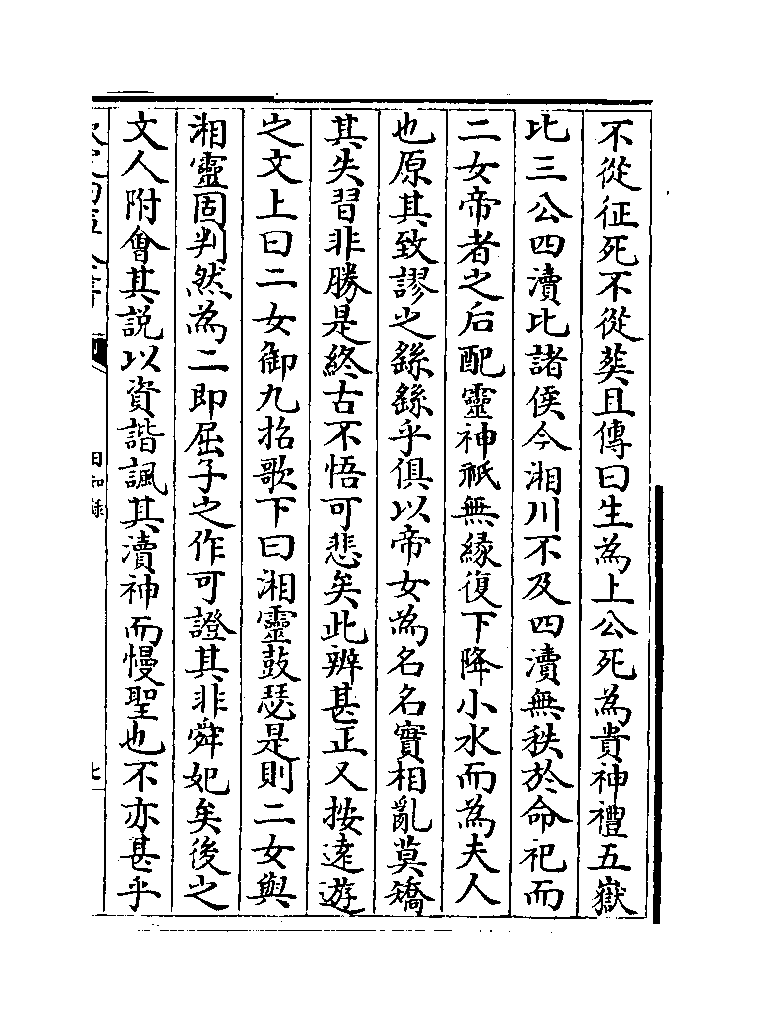 不從征死不從葬且傳曰生為上公死為貴神禮五嶽
比三公四瀆比諸侯今湘川不及四瀆無秩於命祀而
二女帝者之后配靈神祇無縁復下降小水而為夫人
也原其致謬之繇繇乎俱以帝女為名名實相亂莫矯
其失習非勝是終古不悟可悲矣此辨甚正又按逺遊
之文上曰二女御九招歌下曰湘靈鼓瑟是則二女與
湘靈固判然為二即屈子之作可證其非舜妃矣後之
文人附會其説以資諧諷其瀆神而慢聖也不亦甚乎
日知錄
七